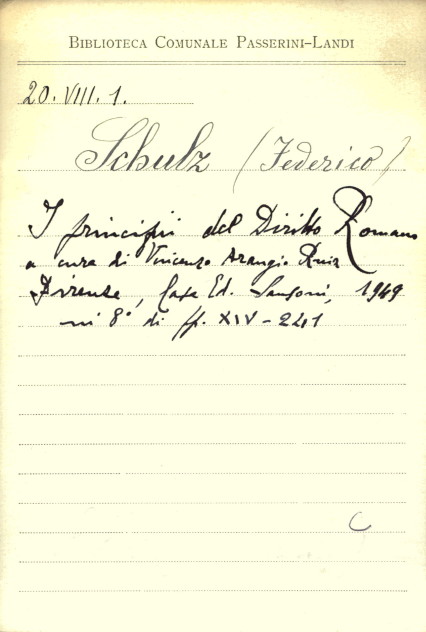 BIBLIOTECA COMUNALE PASSERINI–LANDI
20. VIII. 1.
Schulz (Federico)
I principii del Diritto Romano
a cura di Vincenzo Arangio Ruiz
Firenze, Casa Ed. Sansoni, 1949
in 8° di pp. XIV – 241
C